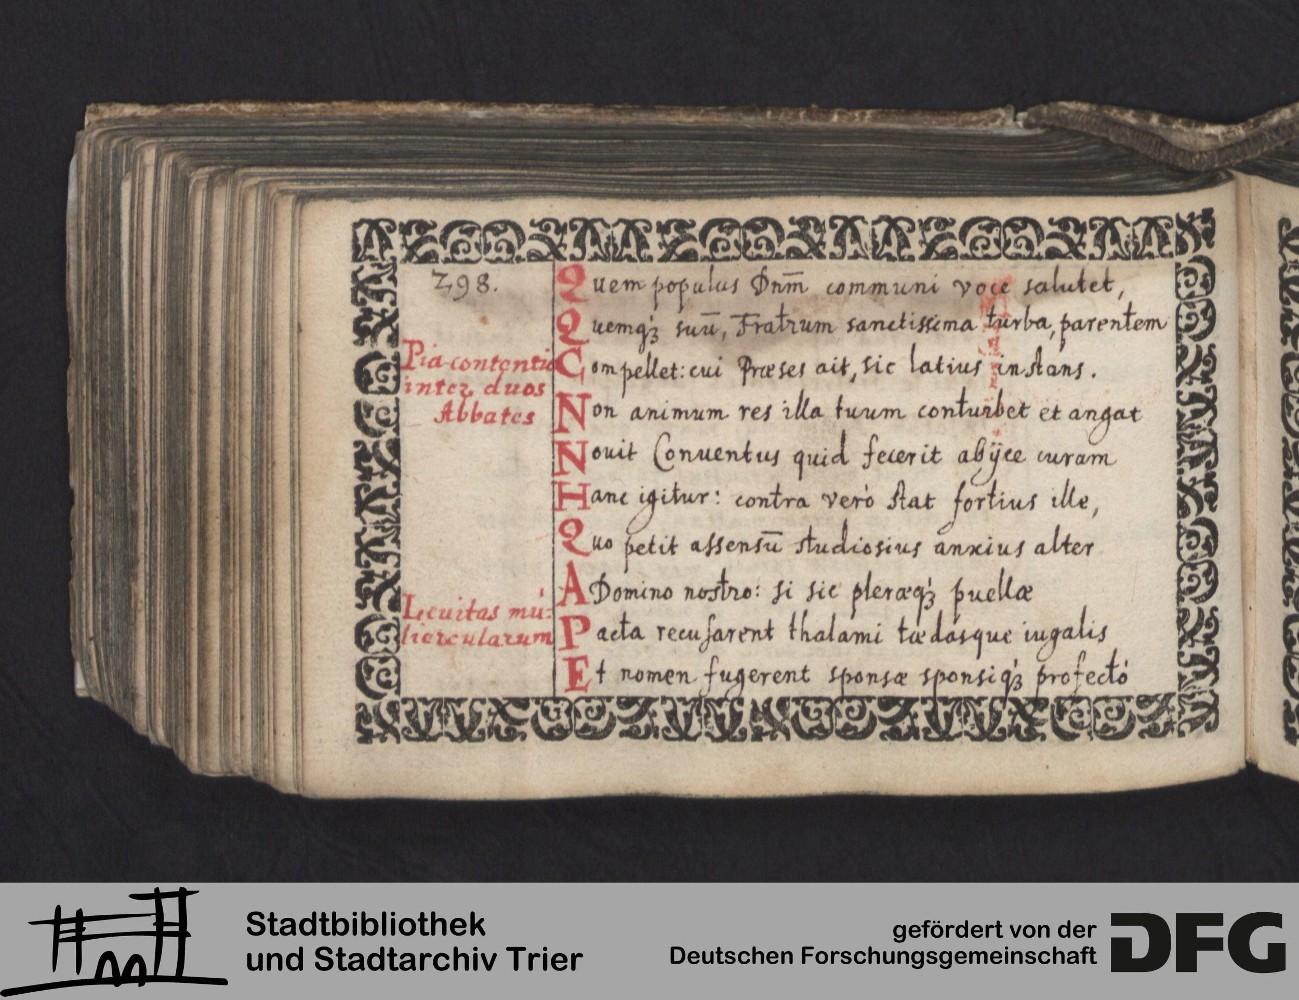 298.
Quem populus Dnm̅ communi voce salutet,
Quemqꝫ suū, Fratrum sanctissima turba, parentem
Pia contentio
inter duos
Abbates
Compellet: cui Præses ait, sic latius instans.
Non animum res illa tuum conturbet et angat
Nouit Conuentus quid fecerit abÿce curam
Hanc igitur: contra verò stat fortius ille,
Quo petit assensū studiosius anxius alter
A Domino nostro: si sic pleræqꝫ puellæ
Leuitas mu-
liercularum
Pacta recusarent thalami tædásque iugalis
Et nomen fugerent sponsæ sponsiqꝫ profectó
Stadtbibliothek
und Stadtarchiv Trier
gefördert von der
Deutschen Forschungsgemeinschaft
DFG